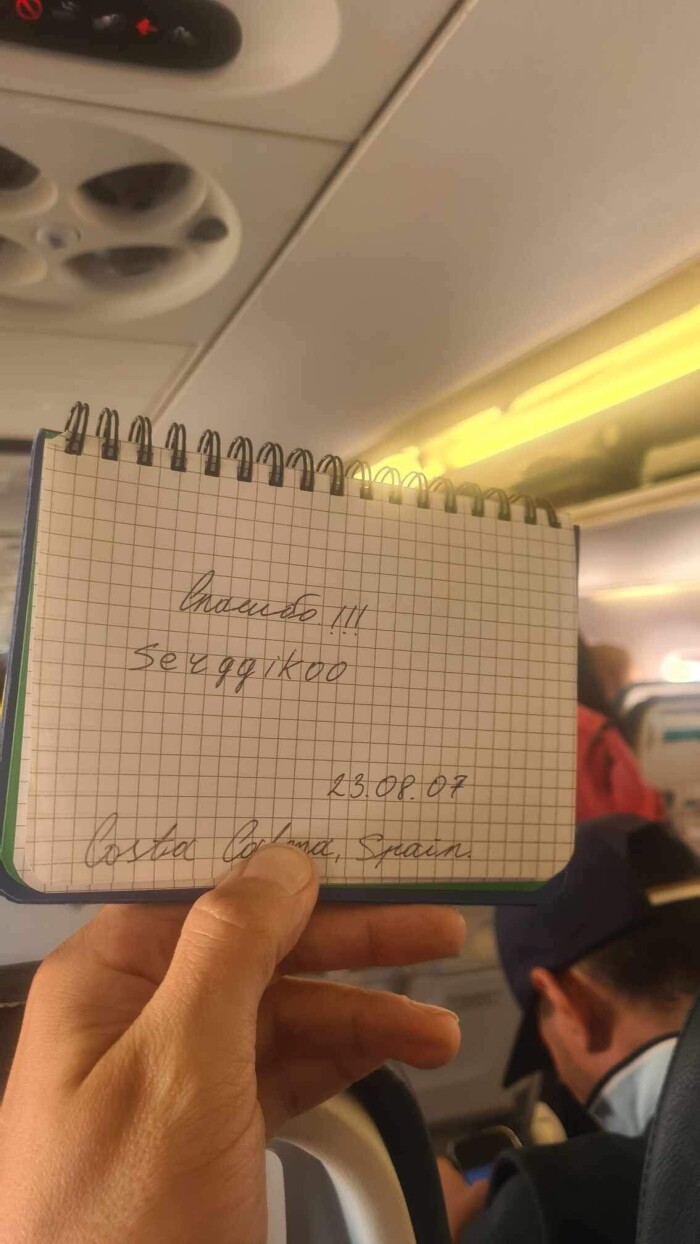 Спасибо !!!
serggikoo
23.08.07
Costa Calma, Spain.